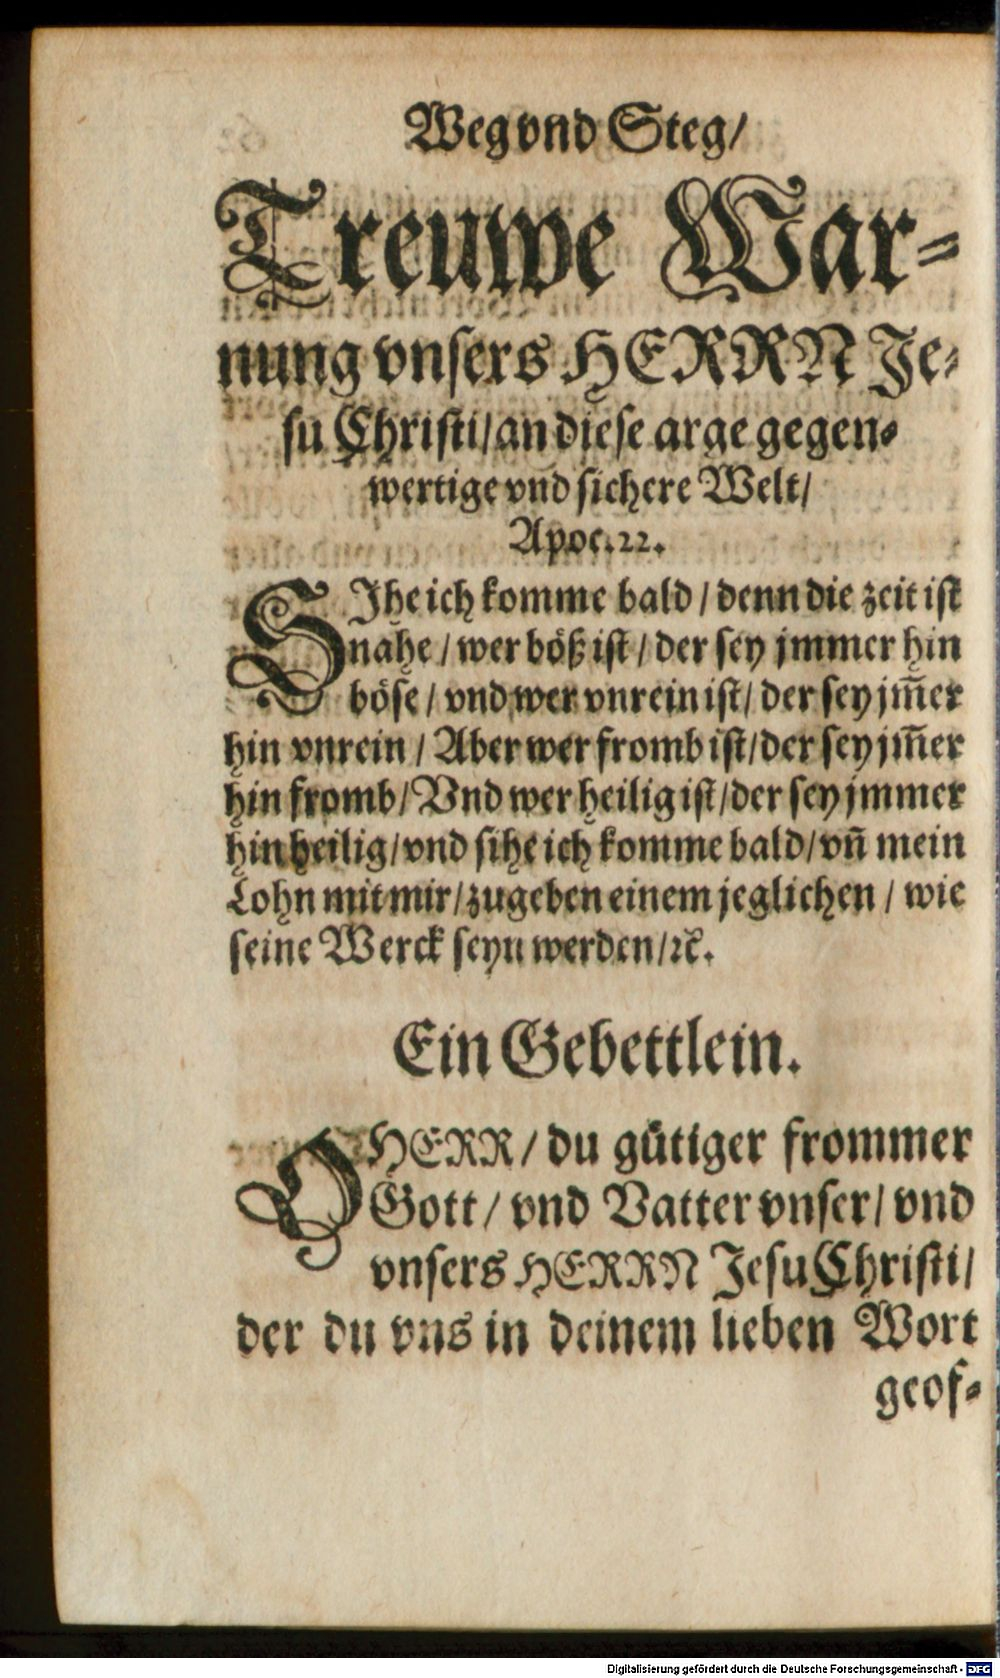 Weg vnd Steg/
Treuwe War-
nung vnsers HERRN Je-
su Christi/ an diese arge gegen-
wertige vnd sichere Welt/
Apoc. 22.
SIhe ich komme bald / denn die zeit ist
nahe / wer böß ist / der sey jmmer hin
böse / vnd wer vnrein ist / der sey jm̃er
hin vnrein / Aber wer fromb ist / der sey jm̃er
hin fromb / Vnd wer heilig ist / der sey jmmer
hin heilig / vnd sihe ich komme bald / vñ mein
Lohn mit mir / zugeben einem jeglichen / wie
seine Werck seyn werden / ꝛc.
Ein Gebettlein.
O HERR / du gütiger frommer
Gott / vnd Vatter vnser / vnd
vnsers HERRN Jesu Christi /
der du vns in deinem lieben Wort
geof-
Digitalisierung gefördert durch die Deutsche Forschungsgemeinschaft - DFG